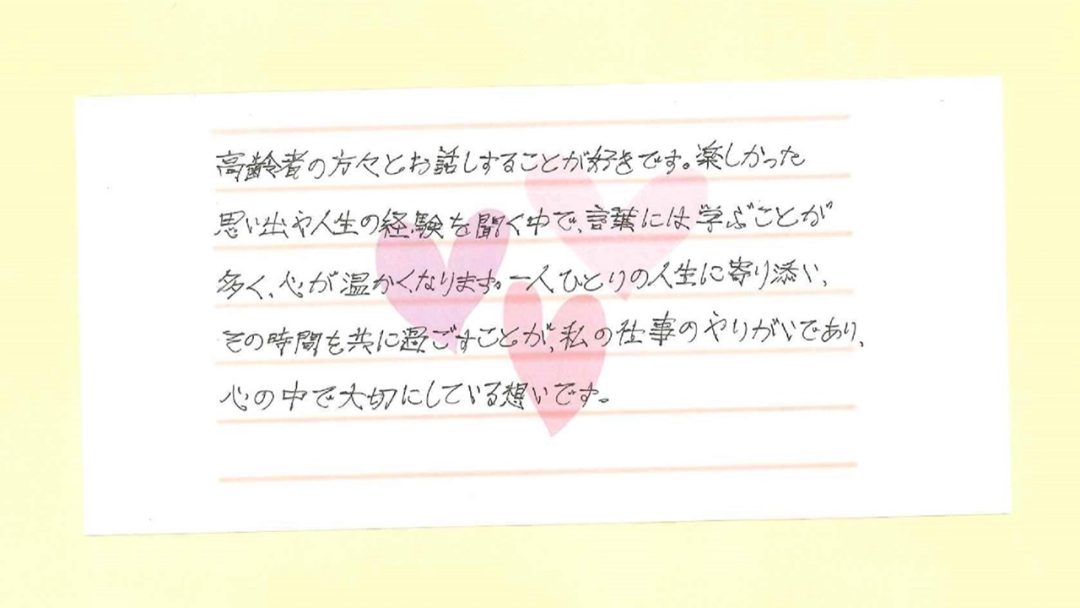 高齢者の方々とお話しすることが好きです。楽しかった
思い出や人生の経験を聞く中で、言葉には学ぶことが
多く、心が温かくなります。一人ひとりの人生に寄り添い、
その時間を共に過ごすことが、私の仕事のやりがいであり、
心の中で大切にしている想いです。